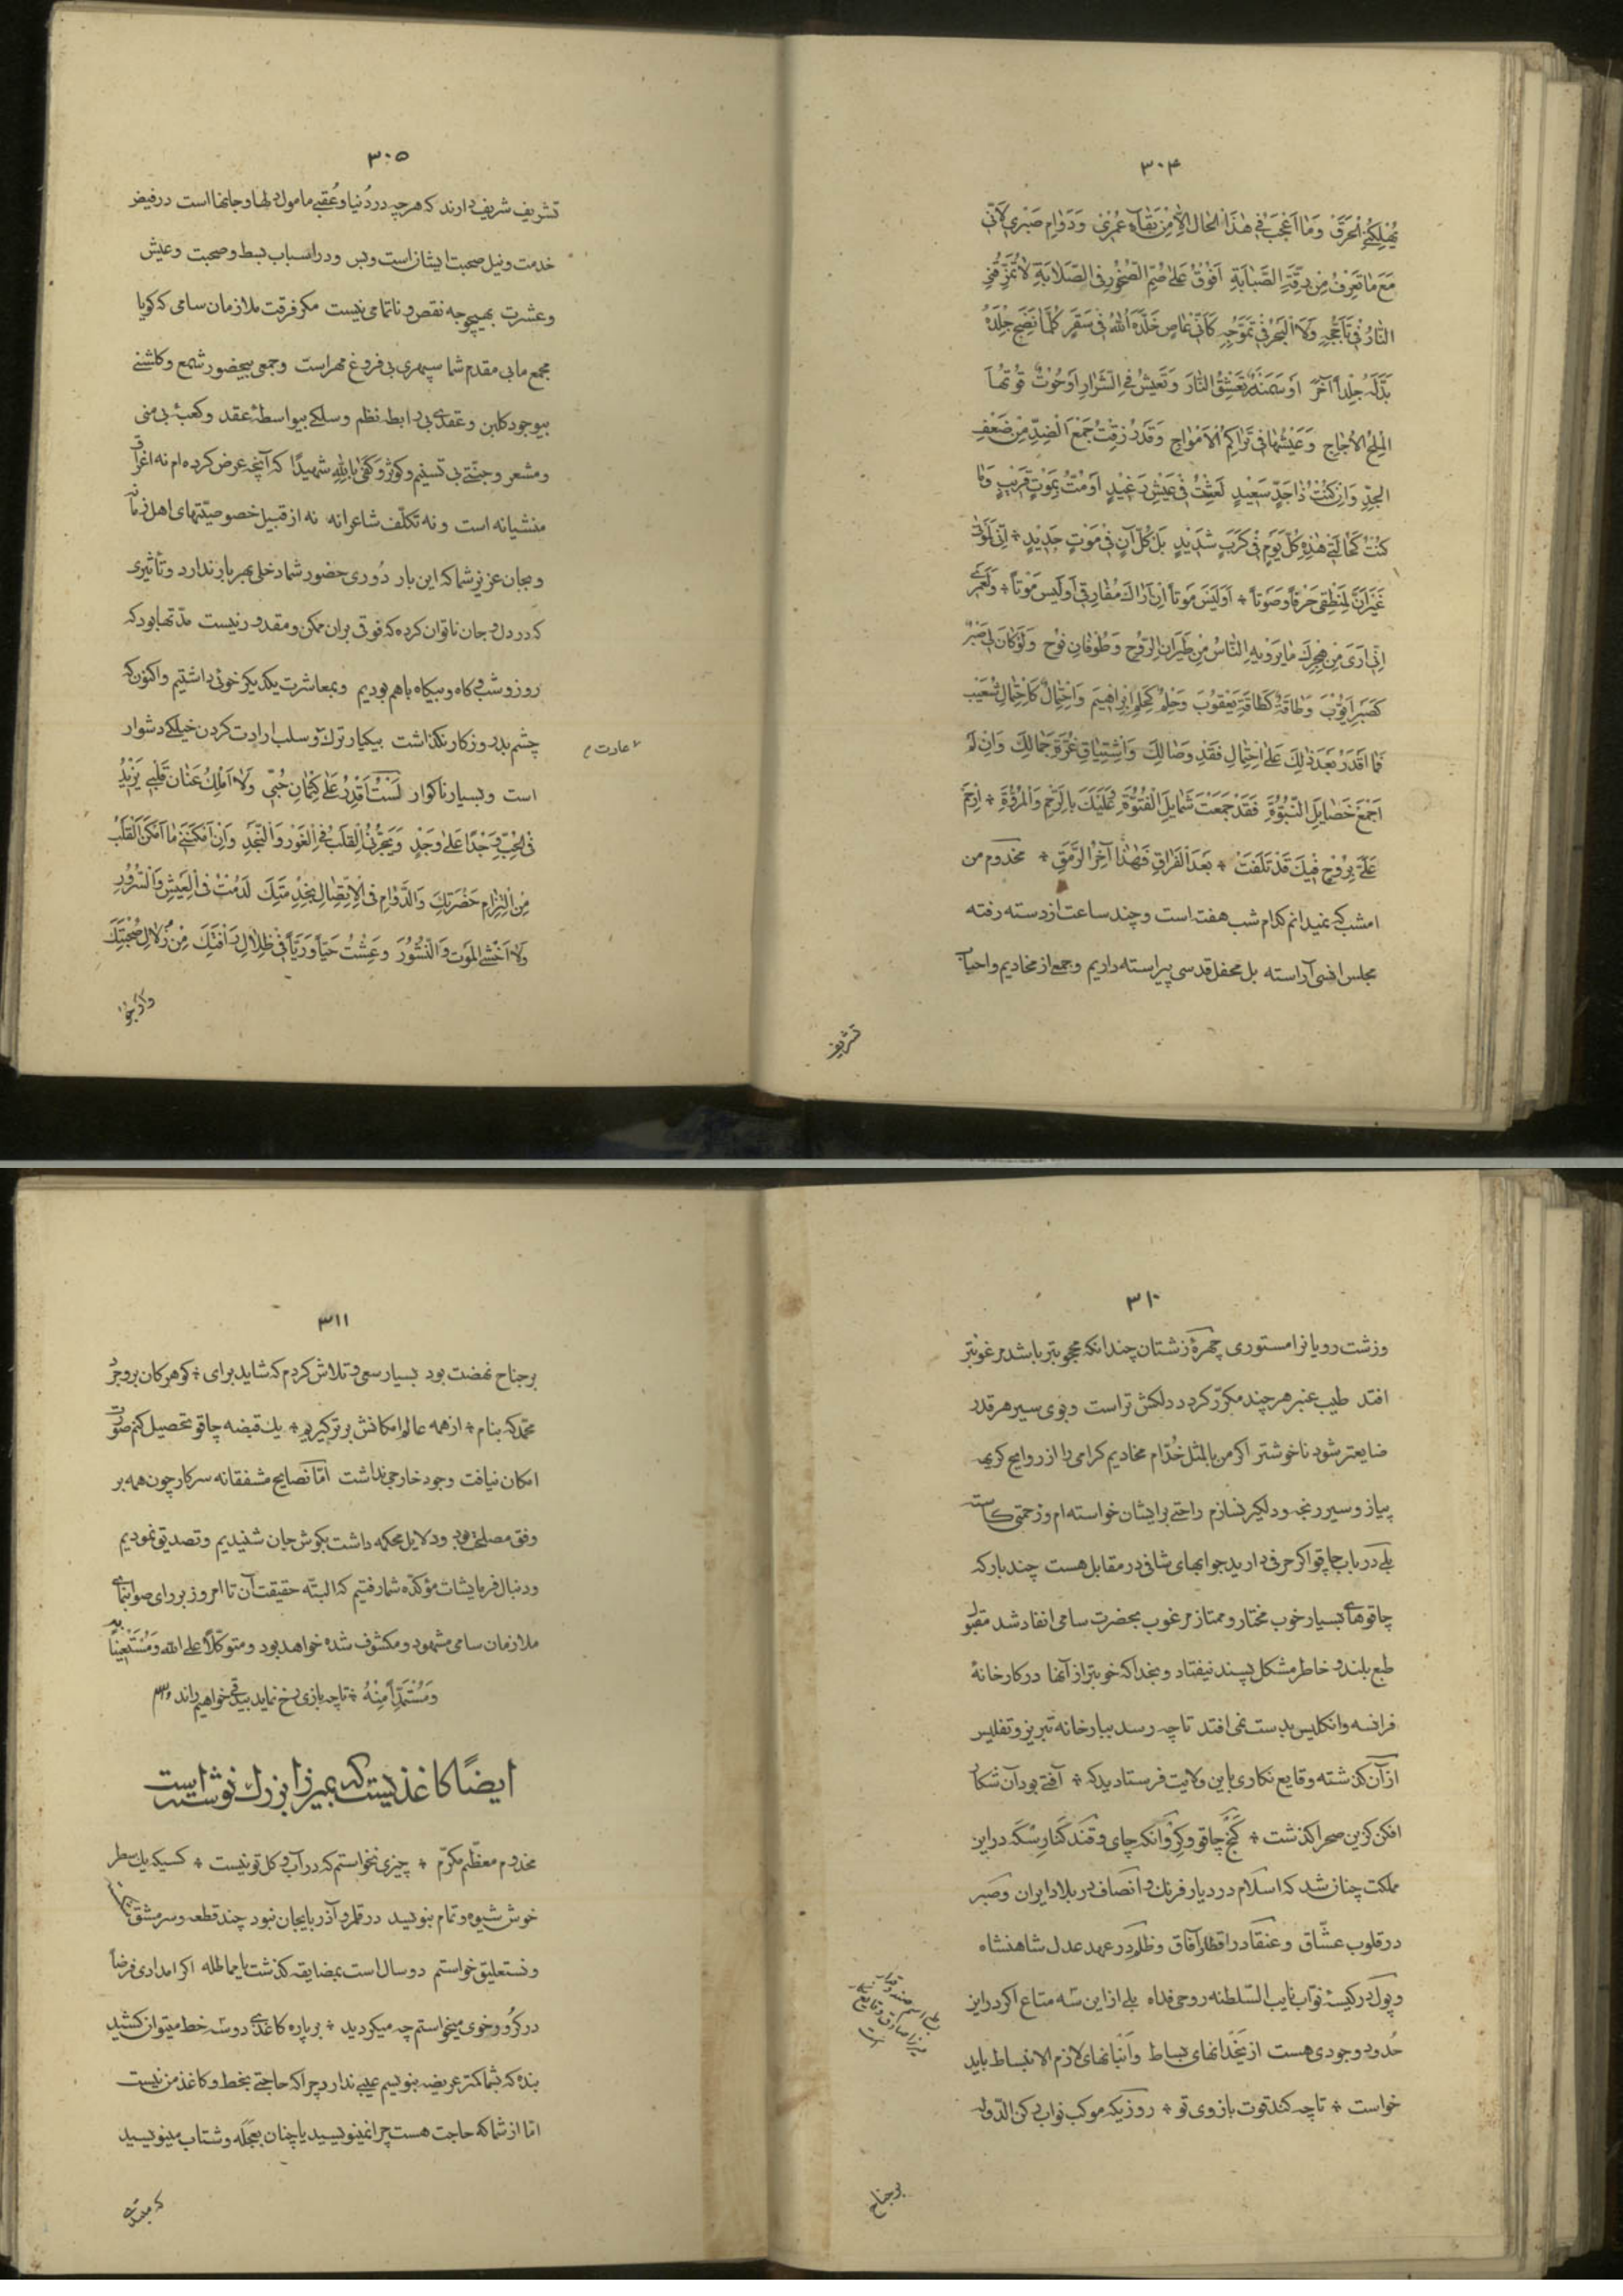 ۳۰۴
یُهْلِکُنِی الْحُرَقُ وَمَا اَعْجَبُ فِی هٰذَا الْحَالِ اِلّا مِنْ بَقَآءِ عُمْرِیْ وَدَوٰامِ صَبْرِی لَاَنّی
مَعَ مَا تَعْرِفُ مِنْ رِقَّةِ الصَّبٰابَةِ اَفُوْقُ عَلیٰ صُمِّ الصُّخُوْرِ فِی الصَّلابَةِ لاتُمَزِّقُنِی
النّٰارُ فِی تَاَجُّجِهِ وَلَا الْبَحْرُ فِی تَمَوُّجِهِ کَاَنّی عٰاصٍ خَلَّدَهُ اللهُ فِی سَقَرٍ کُلَّمٰا نَضِجَ جِلْدُهُ
بَدَّلَهُ جِلْداً آخَرَ اَوْ سَمَنْدَرٌ تَعَشَّقَ النّٰارَ وَتَعِیشُ فِی الشَّرٰارِ اَوْ حُوْتٌ قُوْتُهٰا
الْمِلْحُ الْاُجٰاجُ وَعَیْشُهٰا فِی تَرٰاکُمِ الْاَمْوٰاجِ وَقَدْ رُزِقْتُ جَمْعَ الضِّدِّ مِنْ ضَعْفِ
الْجِدِّ وَاِنْ کُنْتُ ذٰا جَدٍّ سَعِیْدٍ لَعِشْتُ فِی عَیْشٍ رَغِیْدٍ اَوْ مُتُّ بِمَوْتٍ قَرِیْبٍ وَمٰا
کُنْتُ کَحٰالَتِی هٰذِهِ کُلَّ یَوْمٍ فِی کَرَبٍ شَدِیْدٍ بَلْ کُلَّ آنٍ فِی مَوْتٍ جَدِیْدٍ * اِنِّی لَمَوْتٰی
غَیْرَ اَنَّ لِمَنْطِقِی حَرْفاً وَصَوْتاً * اَوَلَیْسَ مَوْتاً اِنْ اَرٰاكَ مُفٰارِقِی اَوَلَیْسَ مَوْتاً * وَلَعَمْرِی
اِنِّی اَرَی مِنْ هِجْرِكَ مٰا یَرْوِیهِ النّٰاسُ مِنْ طَیَرٰانِ الرّوُحِ وَطُوْفٰانِ نُوْحٍ وَلَوْ کٰانَ لِی صَبْرٌ
کَصَبْرِ اَیُّوْبَ وَطٰاقَةٌ کَطٰاقَةِ یَعْقُوْبَ وَحِلْمٌ کَحِلْمِ اِبْرٰاهِیْمَ وَاحْتِمٰالٌ کَاحْتِمٰالِ شُعَیْبَ
فَمٰا اَقْدِرُ بَعْدَ ذٰلِكَ عَلَی احْتِمٰالِ فَقْدِ وِصٰالِكَ وَاشْتِیٰاقِ غُرَّةِ جَمٰالِكَ وَاِنْ لَمْ
اَجْمَعْ خَصٰایِلَ النُّبُوَّةِ فَقَدْ جَمَعْتَ شَمٰایِلَ الْفُتُوَّةِ فَعَلَیْكَ بِالرَّحْمِ وَالْمُرُوَّةِ * اِرْحَمْ
عَلَیَّ بِرُوْحٍ فِیكَ قَدْ تَلَفَتْ * بَعْدَ الْفِرٰاقِ فَهٰذٰا آخِرُ الرَّمَقِ * مخدوم من
امشب که نمیدانم کدام شب هفته است و چند ساعت از دسته رفته
مجلس انسی آراسته بل محفل قدسی پیراسته داریم و جمعی از مخادیم و احباب
تشریف
۳۰۵
تشریف شریف دارند که هر چه در دُنیا و عُقبی مامول دلها و جانها است در فیض
خدمت و نیل صحبت ایشان است و بس و در اسباب بسط و صحبت و عیش
و عشرت بهیچوجه نقص و ناتمامی نیست مکر فرقت ملازمان سامی که کویا
مجمع ما بی مقدم شما سپهری بی فروغ مهر است و جمعی بیحضور شمع و کلشنی
بیوجود کلبن و عقدی بی رابطه نظم و سلکی بیواسطهٔ عقد و کعبهٔ بی منی
و مشعر و جنّتی بی تسنیم و کوثر وَ کَفیٰ بِاللهِ شَهِیدًا که آنچه عرض کرده ام نه اغراق
منشیانه است و نه تکلّف شاعرانه نه از قبیل خصوصیّتهای اهل زمان
و بجان عزیز شما که این بار دُوری حضور شما دخلی بهر بار ندارد و تأثیری
که در دل و جان ناتوان کرده که فوقی بران ممکن و مقدور نیست مدّتها بود که
روز و شب و کاه و بیکاه با هم بودیم و بمعاشرت یکدیکر خوئی داشتیم و اکنون که
چشم بد روزکار نکذاشت بیکبار ترك و سلب ارادت کردن خیلی دشوار
عادت
است و بسیار ناکوار لَسْتُ اَقْدِرُ عَلیٰ کِتْمٰانِ حُبِّی وَلٰا اَمْلِكُ عِنٰانَ قَلْبِی یَزِیْدُ
فِی الْحُبِّ وَجْدًا عَلیٰ وَجْدٍ وَیَجُرُّنِی الْقَلْبُ فِی الْغَوْرِ وَالنَّجْدِ وَاِنْ اَمْکَنَنِی مٰا اَمْکَنَ الْقَلْبُ
مِنْ الْتِزٰامِ حَضْرَتِكَ وَالدَّوٰامِ فِی الْاِتِّصٰالِ بِخِدْمَتِكَ لَدُمْتُ فِی الْعَیْشِ وَالسُّرُوْرِ
وَلٰا اَخْشَی الْمَوْتَ وَالنُّشُوْرَ وَعِشْتُ حَیّاً وَرَیّاً فِی ظِلٰالِ رَاْفَتِكَ مِنْ زُلٰالِ صُحْبَتِكَ
وَاَرْجُو
۳۱۰
و زشت رویانرا مستوری چهرهٔ زشتان چندانکه محجوبتر باشد مرغوبتر
افتد طیب عنبر هر چند مکرّر کردد دلکش تر است و بوی سیر هر قدر
ضایعتر شود ناخوشتر اکر من بالمثل خدّام مخادیم کرامی را از روایح کریه
پیاز و سیر رنجه و دلکیر نسازم راحتی برایشان خواسته ام و زحمتی کاسته
بلی در باب چاقو اکر حرفی دارید جوابهای شافی در مقابل هست چند بار که
چاقوهای بسیار خوب مختار و ممتاز مرغوب بحضرت سامی انفاد شد مقبول
طبع بلند و خاطر مشکل پسند نیفتاد و بخدا که خوبتر از آنها در کارخانهٔ
فرانسه و انکلیس بدست نمی افتد تا چه رسد ببارخانه تبریز و تفلیس
از آن کذشته وقایع نکاری باین ولایت فرستادید که * آفتی بود آن شکار
افکن کزین صحرا کذشت * کَنج چاقو و کِروانکه چای و قند کنار سکّه در این
مملکت چنان شد که اسلام در دیار فرنك و انصاف در بلاد ایران و صبر
در قلوب عشّاق و عنقا در اقطار آفاق و ظلم در عهد عدل شاهنشاه
و پول در کیسهٔ نوّاب نایب السّلطنه روحی فداه بلی از این سه متاع اکر در این
حُدود وجودی هست از یخدانهای بساط و اَنبانهای لازم الانبساط باید
خواست * تا چه کند قوت بازوی تو * روزیکه موکب نواب رکن الدّوله
میرزا صادق وقایع نکار
برجناح
۳۱۱
بر جناح نهضت بود بسیار سعی و تلاش کردم که شاید برای * کوهر کان بروجرد
محمّد که بنام * از همه عالم امکانش برتر کیریم * یك قبضه چاقو تحصیل کنم صورت
امکان نیافت وجود خارجی نداشت امّا نصایح مشفقانه سرکار چون همه بر
وفق مصلحت بود و دلایل محکمه داشت بکوش جان شنیدیم و تصدیق نمودیم
و دنبال فرمایشات مؤکّده شما رفتیم که البتّه حقیقت آن تا امروز بر رای صوابنمای
ملازمان سامی مشهود و مکشوف شده خواهد بود و متوکّلاً علی الله وَ مُسْتَعِیْنًا بِهِ
وَ مُسْتَمِدّاً مِنْهُ * تا چه بازی رخ نماید بیدقی خواهیم راند
ایضًا کاغذیست که بمیرزا بزرك نوشته است
مخدوم معظّم مکرّم * چیزی نخواستم که در آب و کل تو نیست * کسیکه یك سطر
خوش شیوه و تمام بنویسد در قلمرو آذربایجان نبود چند قطعه و سر مشق
و نستعلیق خواستم دو سال است بمضایقه کذشت یا بمماطله اکر امدادی فرضاً
در کرور خوی میخواستم چه میکردید * بر پاره کاغذی دو سه خط میتوان کشید
بنده که بشما کمتر عریضه بنویسم عیبی ندارد چرا که حاجتی بخط و کاغذ من نیست
امّا از شما که حاجت هست چرا نمینویسید یا چنان بعجله و شتاب مینویسید